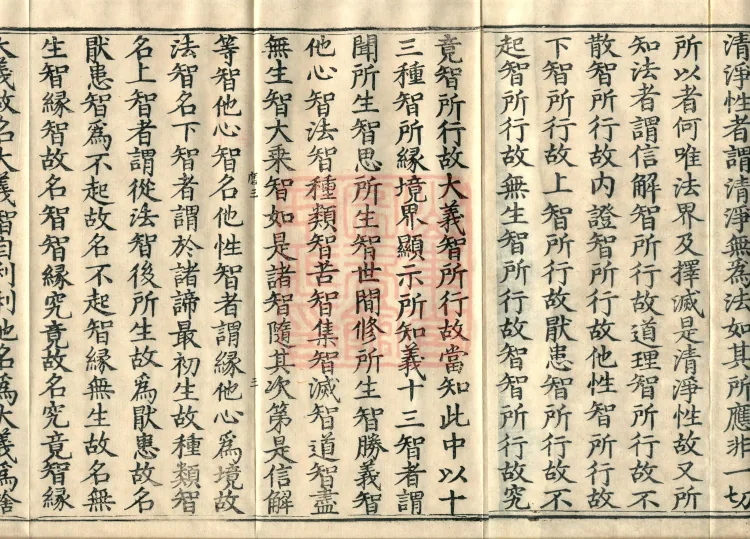 清淨性者謂清淨無為法如其所應非一切
所以者何唯法界及擇滅是清淨性故又所
知法者謂信解智所行故道理智所行故不
散智所行故内證智所行故他性智所行故
下智所行故上智所行故猒患智所行故不
起智所行故無生智所行故智智所行故究
竟智所行故大義智所行故當知此中以十
三種智所緣境界顯示所知義十三智者謂
聞所生智思所生智世間修所生智勝義智
他心智法智種類智苦智集智滅智道智盡
無生智大乘智如是諸智隨其次第是信解
等智他心智名他性智者謂緣他心為境故
法智名下智者謂於諸諦最初生故種類智
名上智者謂從法智後所生故為猒患故名
猒患智為不起故名不起智緣無生故名無
生智緣智故名智智緣究竟故名究竟智緣
大義故名大義智自利利他名為大義為捨